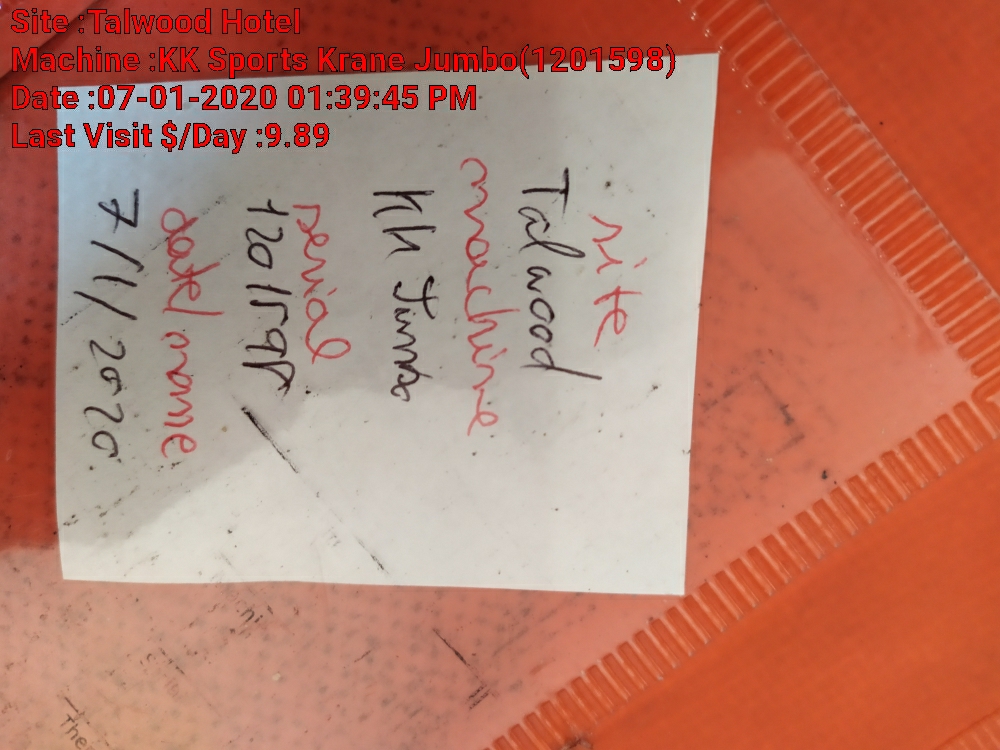 Site :Talwood Hotel
Machine :KK Sports Krane Jumbo(1201598)
Date :07-01-2020 01:39:45 PM
Last Visit $/Day :9.89
site
Talwood
machine
KK Jumbo
serial
1201598
date/name
7/1/2020
the